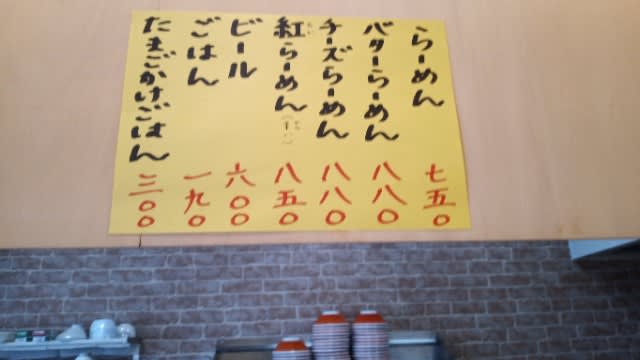 らーめん 七五〇
バターらーめん 八八〇
チーズらーめん 八八〇
紅らーめん 八五〇
ビール 六〇〇
ごはん 一九〇
たまごかけごはん 三〇〇